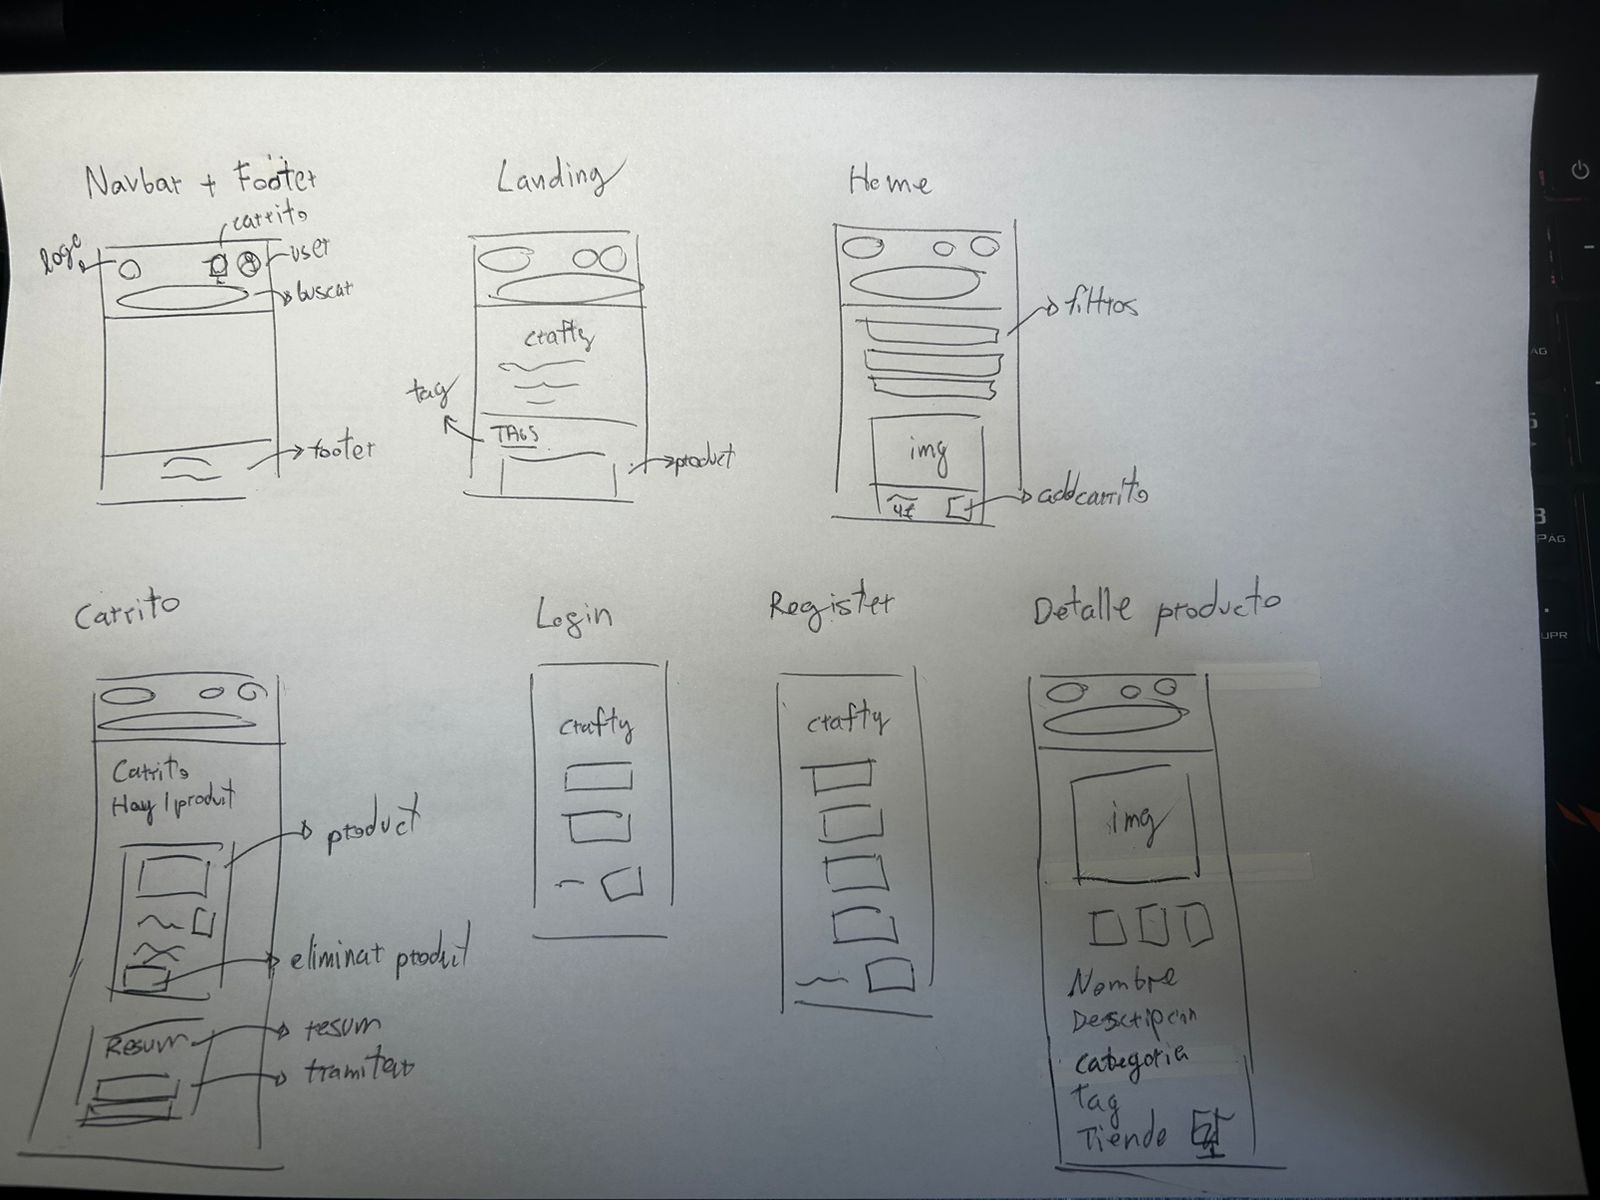 Navbar + Footer
carrito
logo
user
buscar
footer
Landing
crafty
tag
TAGS
product
Home
filtros
img
4€
addcarrito
Carrito
Carrito
Hay 1 produit
product
eliminar produit
Resum
resum
tramitar
Login
crafty
Register
crafty
Detalle producto
img
Nombre
Categoria
Tag
Tienda